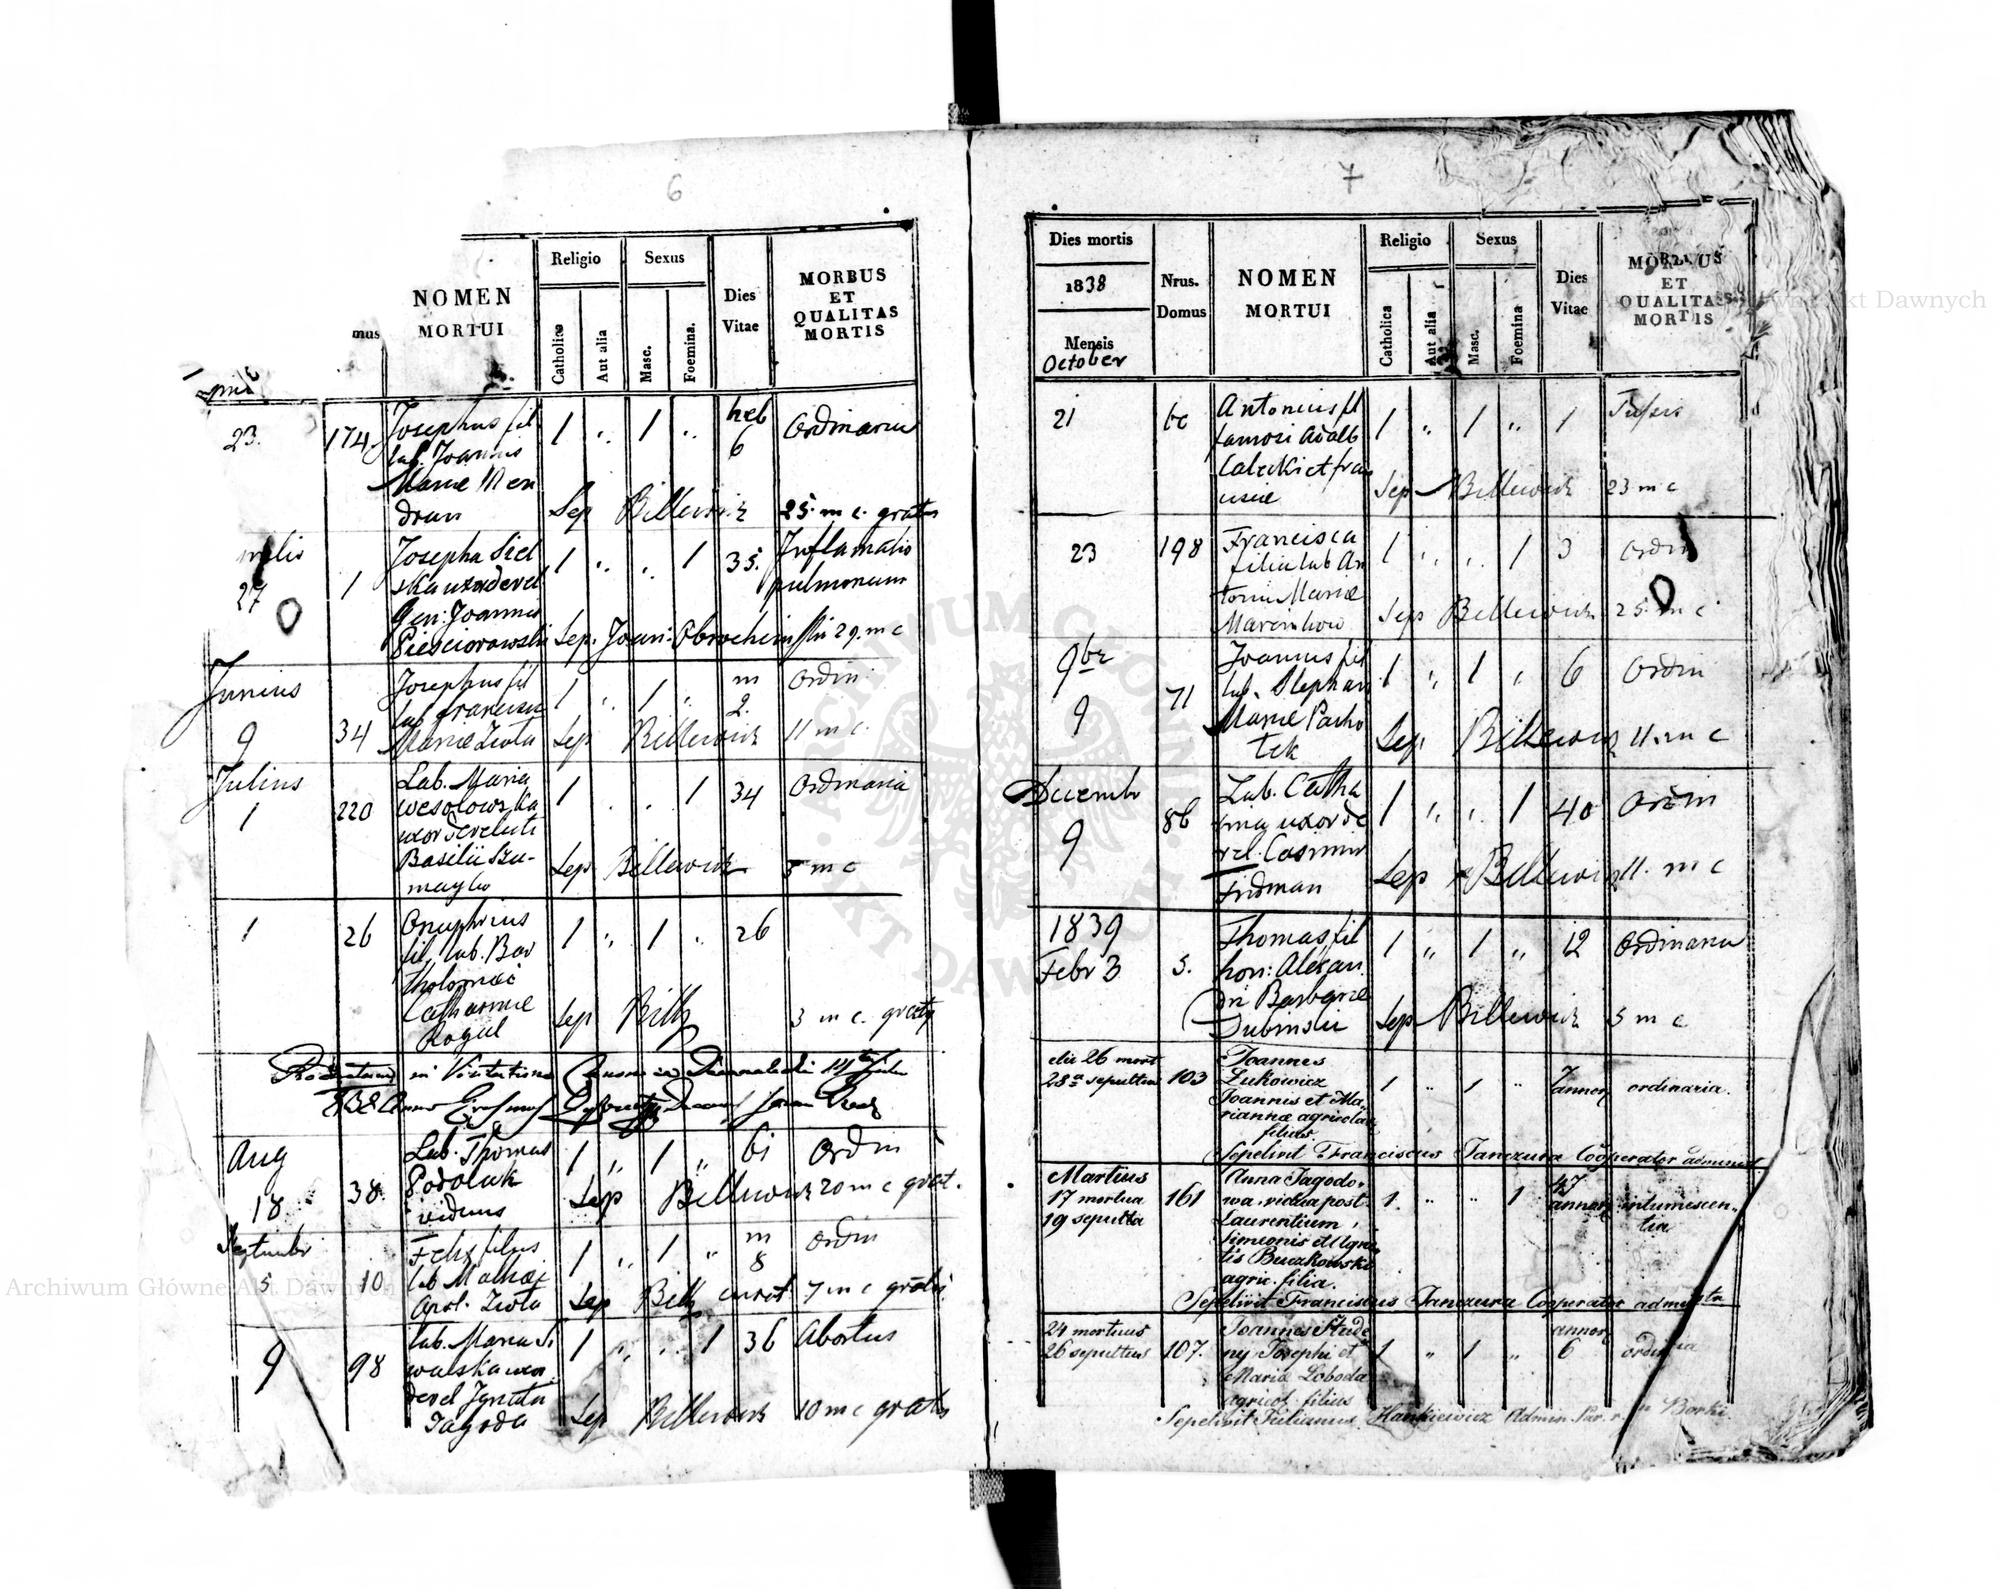 6
NOMEN
MORTUI
Religio
Catholica
Aut alia
Sexus
Masc.
Foemina.
Dies
Vitae
MORBUS
ET
QUALITAS
MORTIS
mus
23. 174. Josephus fil 1 " 1 " heb 6 Ordinaria
lab. Joannis
Mariae Men
dran Sep Billewicz 25. m c. gratis
27 1 Josepha Siel 1 " " 1 35. Inflamatio
ska uxor derel pulmonum
Gen: Joannis
Pieściorowski Sep. Joan: 29. m c
Junius
9 34 Josephus fil 1 " 1 " m 2. Ordin
lab francisci
Mariae Zwola Sep Billewicz 11 m c.
Julius
1 220 Lab. Maria 1 " " 1 34 Ordinaria
Wesolowska
uxor derelicti
Basilii Szu-
maylo Sep Billewicz 3 m c
1 26 Onuphrius 1 " 1 " 26
fil. lab. Bar
tholomaei
Catharinae
Rogul Sep Billz 3 m c. gratis
in Visitatione
838
Aug
18 38. Lab. Thomas 1 " 1 " 61 Ordin
Podolak
viduus Sep Billewicz 20 m c grat.
Septembr
5 10 Felix filius 1 " 1 " m 8 Ordin
lab Mathaei
Apol. Zwola Sep Billz curat 7 m c gratis
9 98 Lab. Maria Si 1 " " 1 36 Abortus
walska uxor
derel Ignatii
Jagoda Sep Billewicz 10 m c gratis
7
Dies mortis
1838
Mensis
October
Nrus.
Domus
NOMEN
MORTUI
Religio
Catholica
Aut alia
Sexus
Masc.
Foemina
Dies
Vitae
MORBUS
ET
QUALITAS
MORTIS
21 Antonius fil 1 " 1 " 1 Tussis
famosi Adalb
et fran
Sep Billewicz 23 m c
23 198 Francisca 1 " " 1 3 Ordin
filia lab An
tonii Mariae
Marcinkow Sep Billewicz 25. m c
9br
9 71 Joannes fil 1 " 1 " 6 Ordin
lab. Stephan
Mariae Pacho
lek Sep Billewicz 11. m c
Decembr
9 86 Lab. Catha 1 " " 1 40 Ordin
rina uxor de
rel. Casimir
Fridman Sep Billewicz 11. m c
1839
Febr 3 5. Thomas fil 1 " 1 " 12 Ordinaria
hon: Alexan
dri Barbarae
Dubinskii Sep Billewicz 5 m c
die 26 mort
28a sepultus 103 Joannes
Łukowicz 1 " 1 " 7 annor ordinaria.
Joannis et Ma,
riannae agricolar
filius.
Sepelivit Franciscus Tanczura Cooperator administ
Martius
17 mortua 161 Anna Jagodo, 1. " " 1 47 annor intumescen,
19 sepulta wa. vidua post tia
Laurentium,
Simeonis et Agne,
tis Buczkowski
agric. filia.
Sepelivit Franciscus Tanczura Cooperator administr
24 mortuus
26 sepultus 107. Joannes Stude 1 " 1 " annor 6 ordinaria
ny Josephi et
Maria Łoboda
agricol. filius
Sepelivit Julianus Hankiewicz Admin. Par. r. in Borki
Archiwum Główne Akt Dawnych
ARCHIWUM GŁÓWNE AKT DAWNYCH